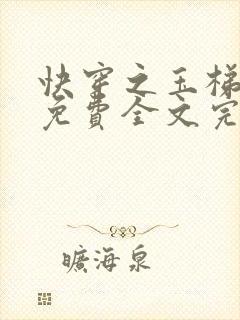 快穿之玉梯
免費全文完
曠海泉